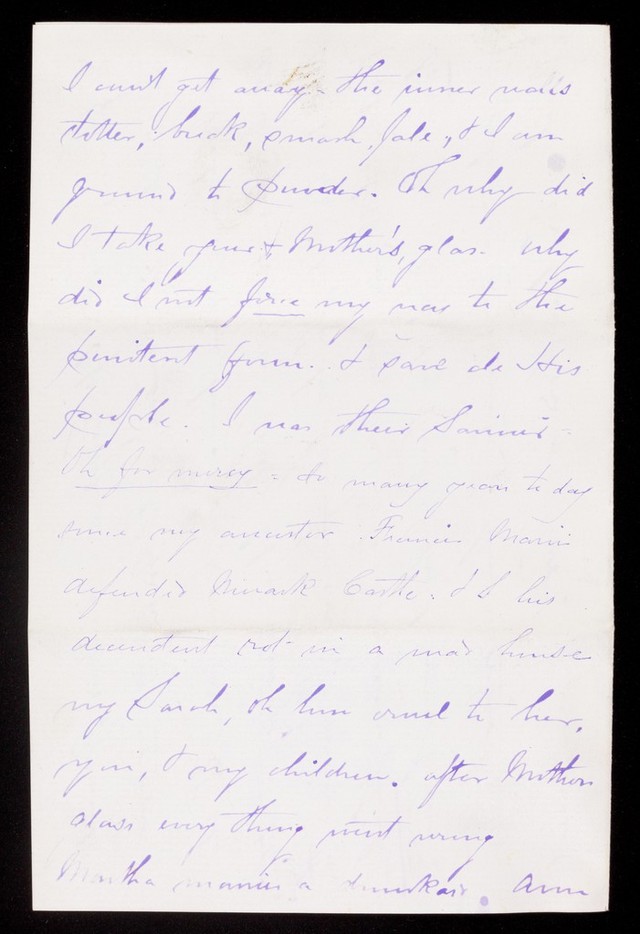 I can't get away - the inner walls
totter, buck, smash, fale, & I am
ground to powder. Oh why did
I take your & Mother's, glas. why
did I not force my way to the
penitent form. & save de His
people. I was their Saviour -
Oh for mercy = So many years to day
since my ancestor Francis
defended Newark Castle. & I his
decendent rot in a mad house
my Sarah, oh how cruel to her,
you, & my children. after Mothers
glass every thing went wrong
Martha marries a drunkard. Ann